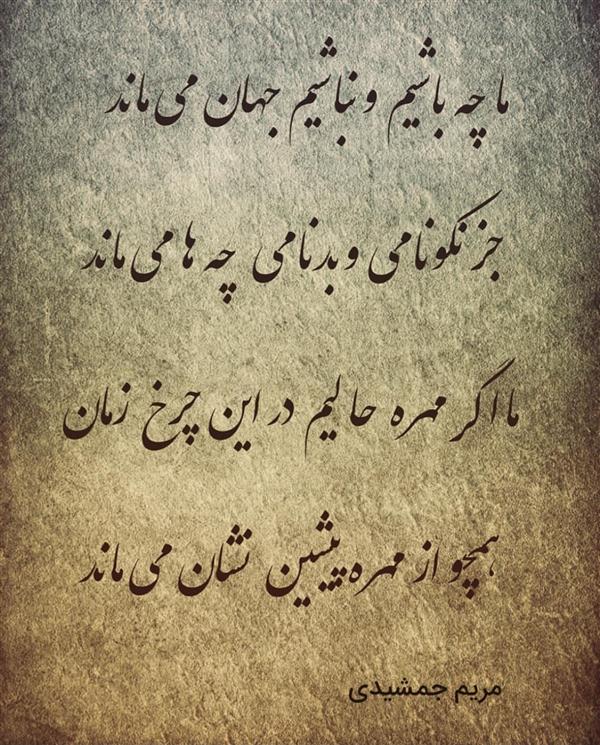 ما چه باشیم و نباشیم جهان می ماند
جز نکونامی و بدنامی چه ها می ماند
ما اگر مهره حالیم در این چرخ زمان
همچو از مهره پیشین نشان می ماند
مریم جمشیدی